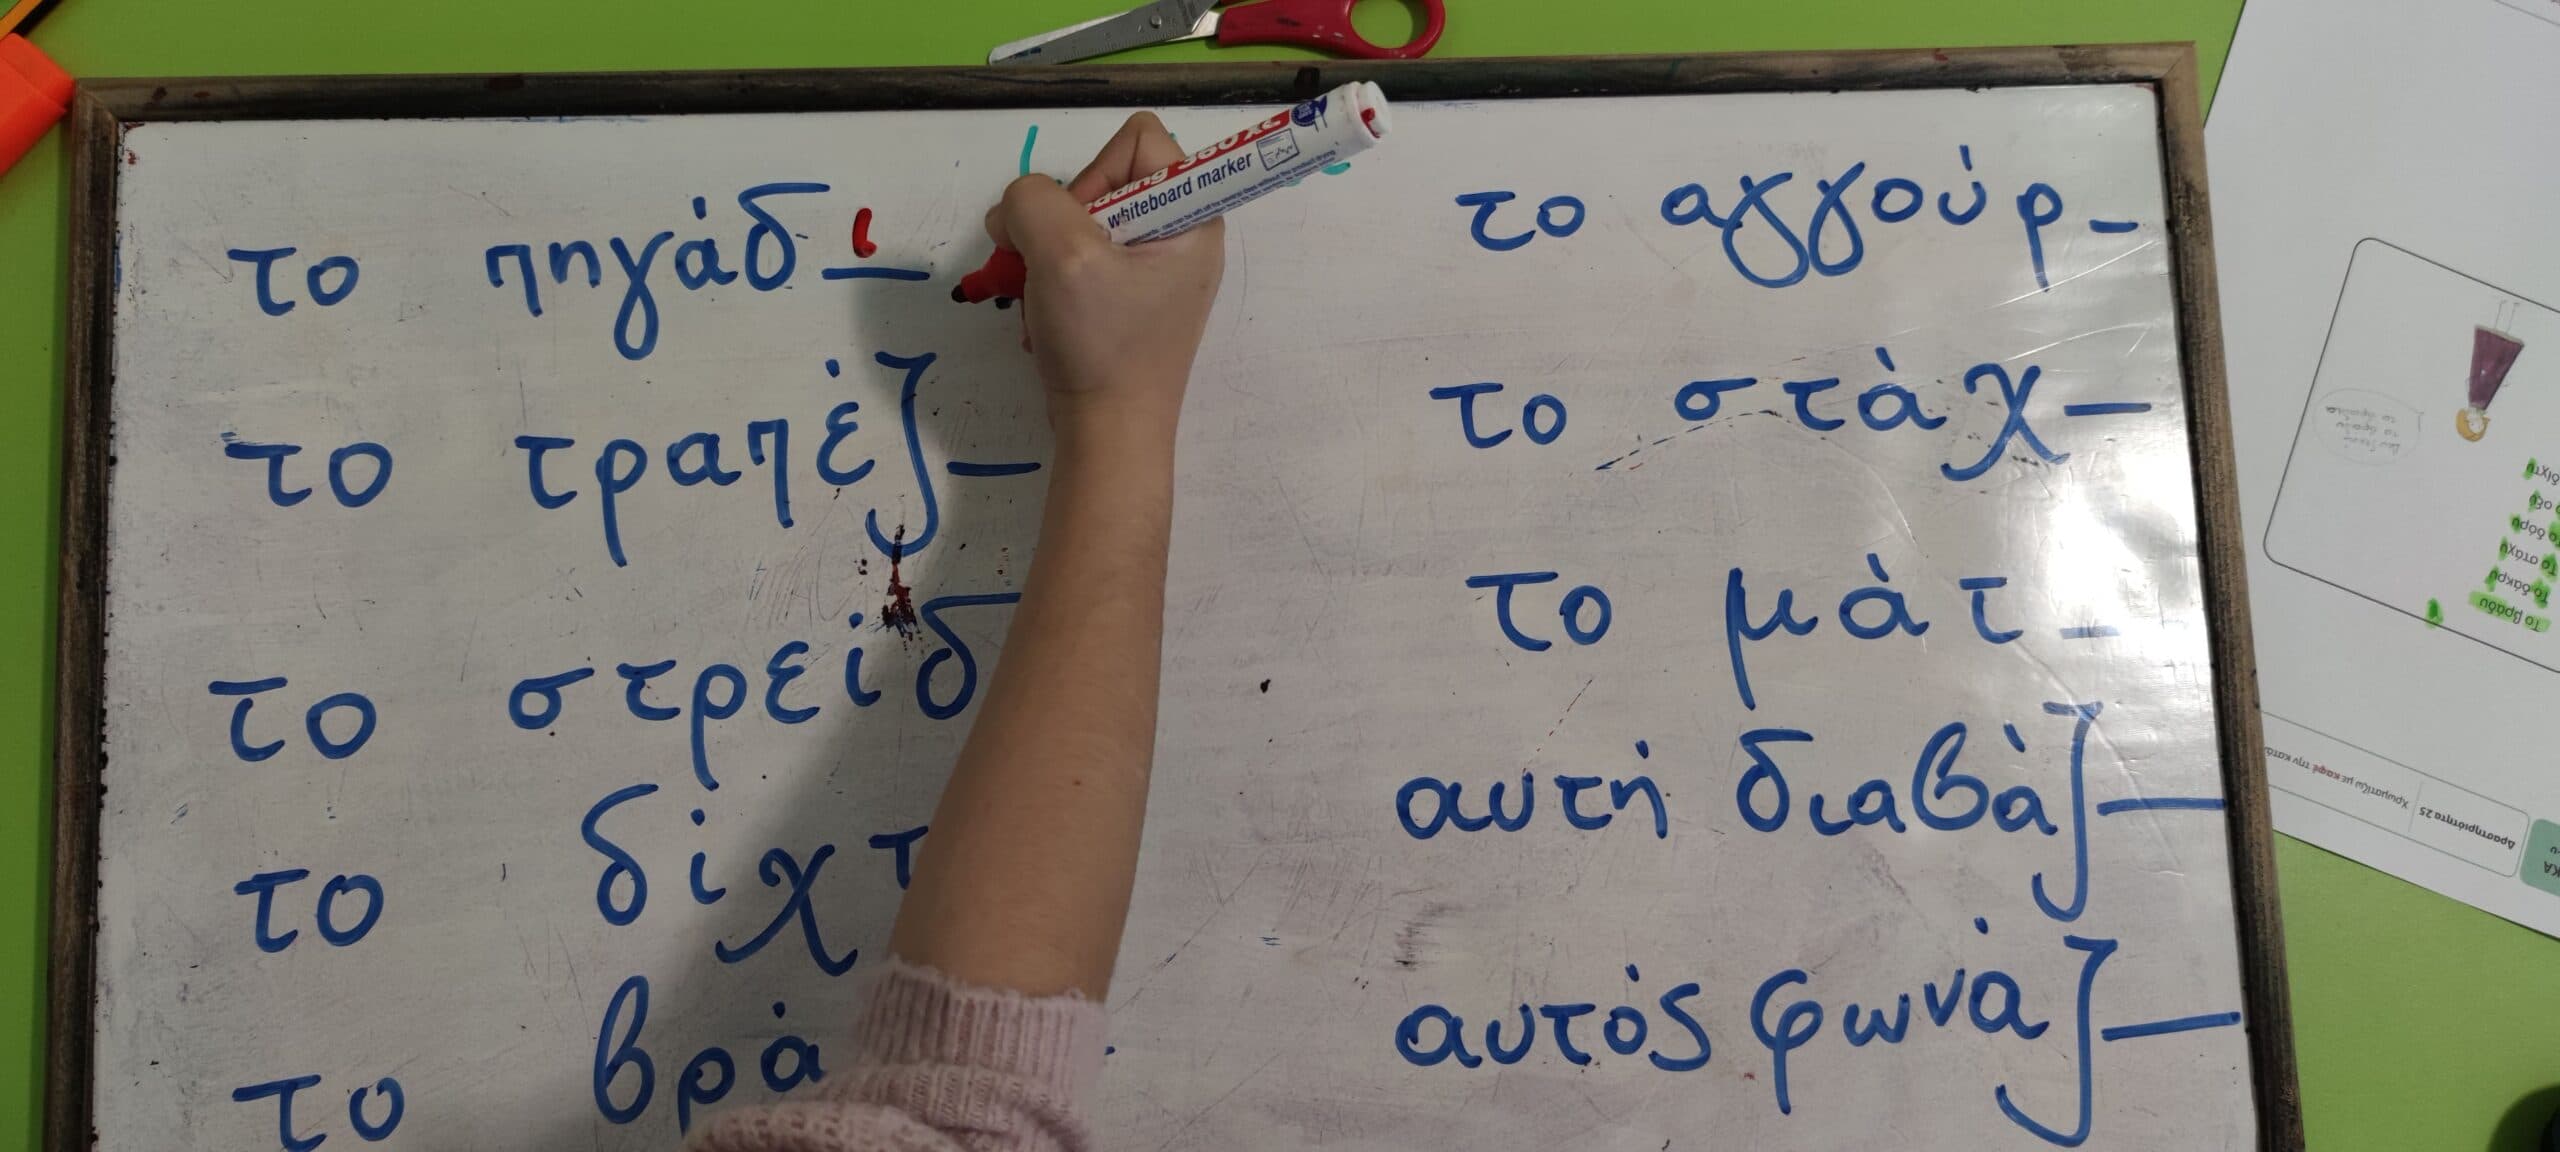 το πηγάδι
το τραπέζ_
το στρείδ
το δίχτ
το βρά
το αγγούρ_
το στάχ_
το μάτ_
αυτή διαβάζ_
αυτός φωνάζ_
edding 360 XL
whiteboard marker
Το βράδυ
Το δάκρυ
Το στάχυ
Το δόρυ
Δραστηριότητα 25
Χρωματίζω με καφέ την κατά